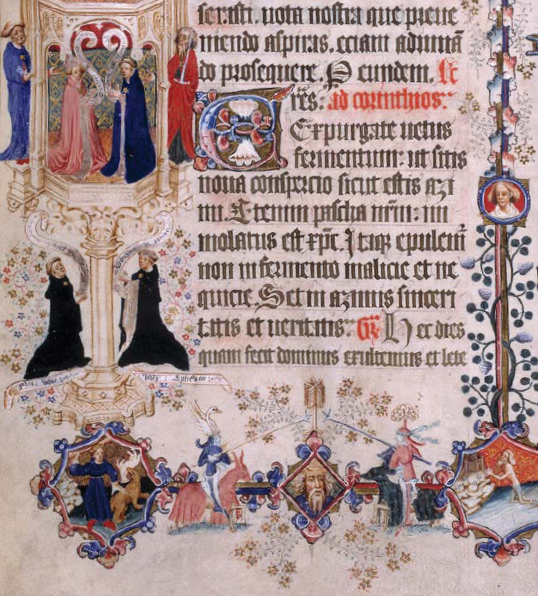 serasti. uota nostra que preue
niendo aspiras. eciam adiuuā
do prosequere. P eundem. lc̄
res: ad corinthios:
Expurgate uetus
fermentum: ut sitis
noua conspercio sicut estis azi
mi. Etenim pascha nr̄m: im
molatus est xp̄c. Itaq epulem̄
non in fermento malicie et ne
quicie. Set in azimis sinceri
tatis et ueritatis: Gr̄ Hec dies
quam fecit dominus exultemus et lete